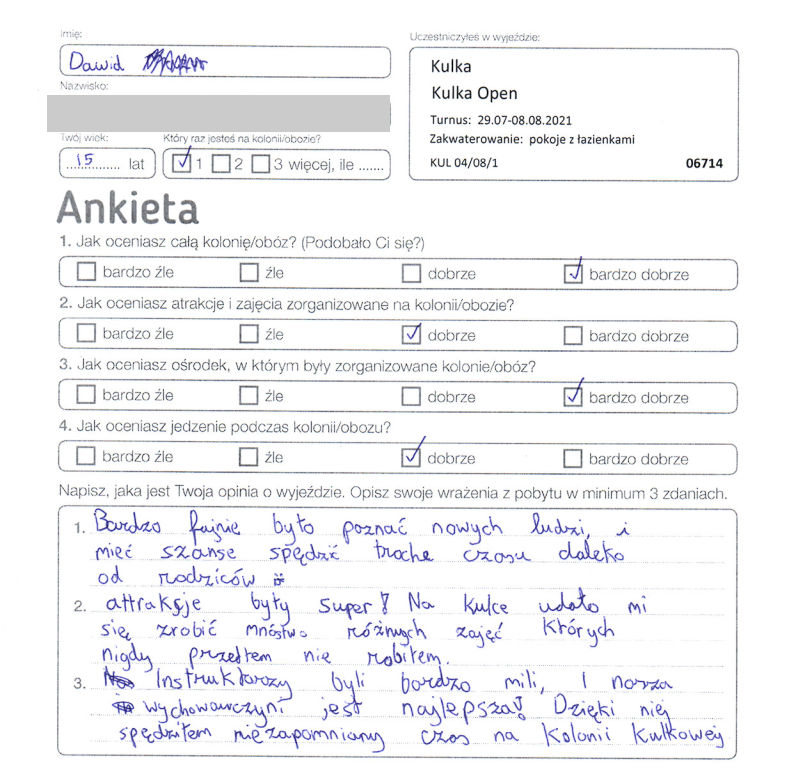 Imię:
Dawid
Nazwisko:
Twój wiek:
15 lat
Który raz jesteś na kolonii/obozie?
1 2 3 więcej, ile .......
Uczestniczyłeś w wyjeździe:
Kulka
Kulka Open
Turnus: 29.07-08.08.2021
Zakwaterowanie: pokoje z łazienkami
KUL 04/08/1 06714
Ankieta
1. Jak oceniasz całą kolonię/obóz? (Podobało Ci się?)
bardzo źle źle dobrze bardzo dobrze
2. Jak oceniasz atrakcje i zajęcia zorganizowane na kolonii/obozie?
bardzo źle źle dobrze bardzo dobrze
3. Jak oceniasz ośrodek, w którym były zorganizowane kolonie/obóz?
bardzo źle źle dobrze bardzo dobrze
4. Jak oceniasz jedzenie podczas kolonii/obozu?
bardzo źle źle dobrze bardzo dobrze
Napisz, jaka jest Twoja opinia o wyjeździe. Opisz swoje wrażenia z pobytu w minimum 3 zdaniach.
1. Bardzo fajnie było poznać nowych ludzi, i
mieć szanse spędzić troche czasu daleko
od rodziców
2. attrakcje były super! Na Kulce udało mi
się zrobić mnóstwo różnych zajęć Których
nigdy przedtem nie robiłem.
3. Instruktorzy byli bardzo mili, I nasza
wychowawczyni jest najlepsza! Dzięki niej
spędziłem niezapomniany czas na Kolonii Kulkowej